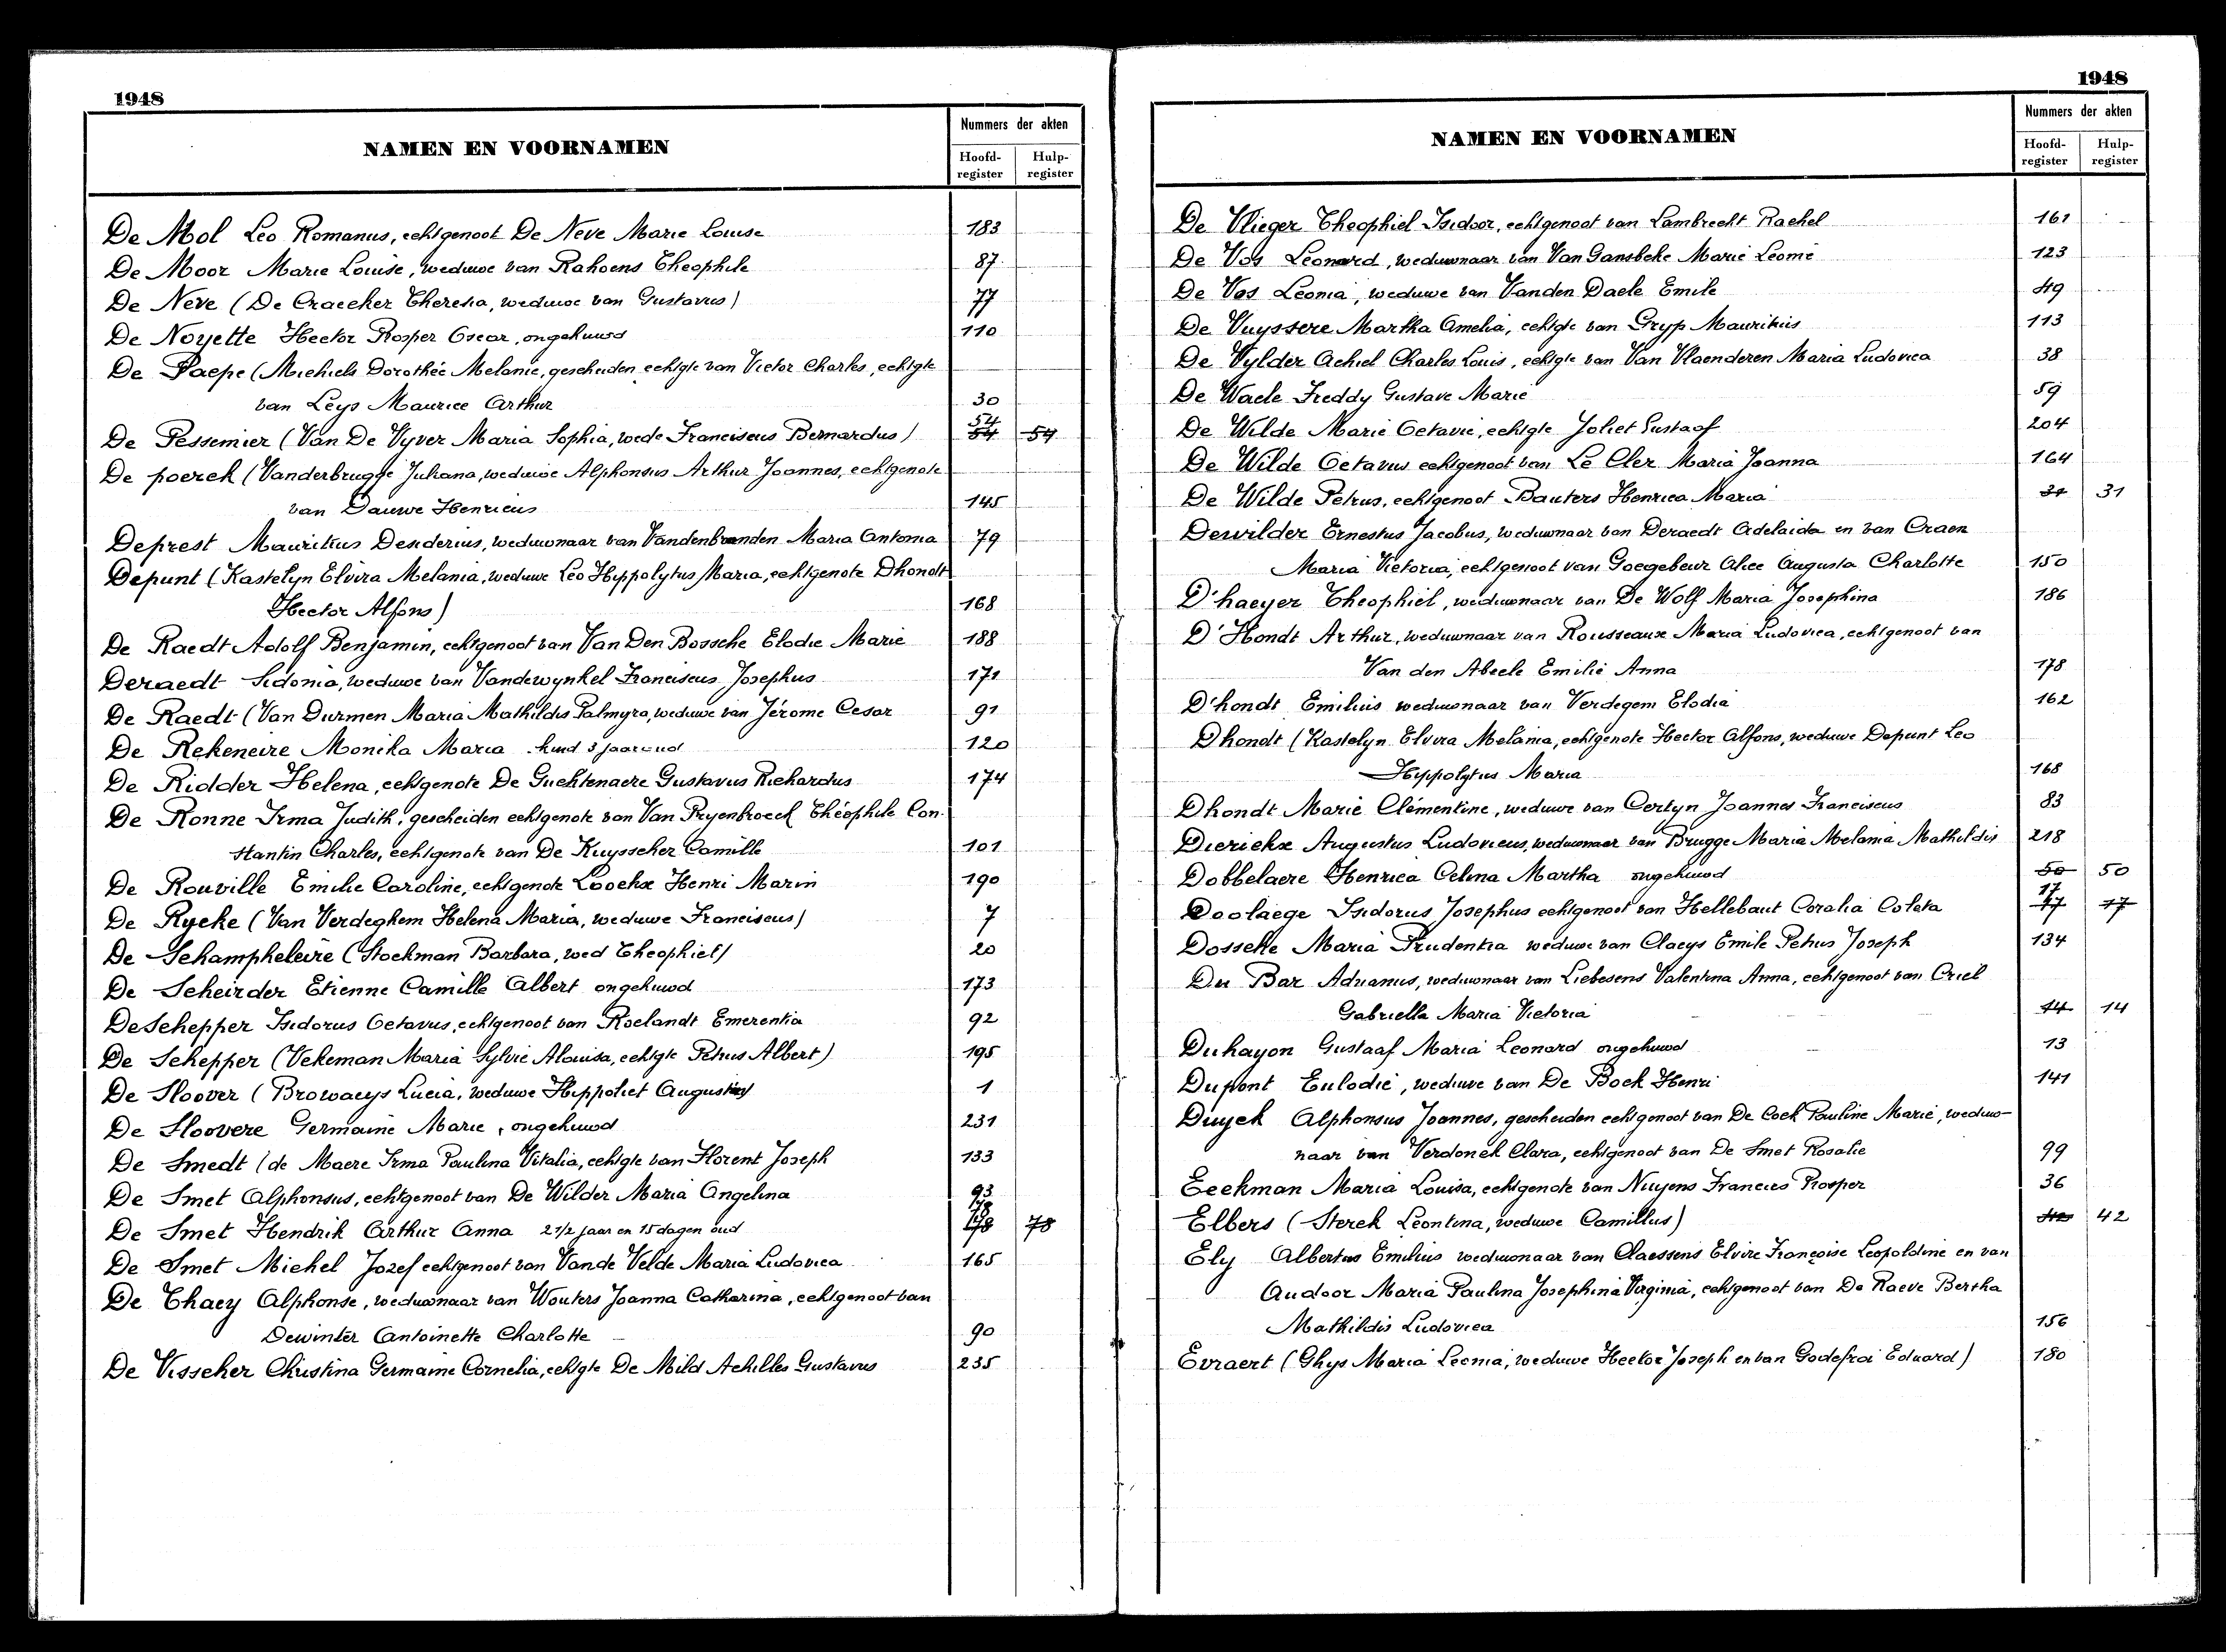 1948
NAMEN EN VOORNAMEN
Nummers der akten
Hoofd-register
Hulp-register
De Mol Leo Romanus, echtgenoot De Neve Marie Louise 183
De Moor Marie Louise, weduwe van Rahoens Theophile 87
De Neve (De Craecker Theresia, weduwe van Gustavus) 77
De Noyette Hector Prosper Oscar, ongehuwd 110
De Paepe (Michiels Dorothée Melanie, gescheiden echtgte van Victor Charles, echtgte
van Leys Maurice Arthur 30
De Pessemier (Van De Vyver Maria Sophia, wede Franciscus Bernardus) 54 54 54
De poerck (Vanderbrugge Juliana, weduwe Alphonsus Arthur Joannes, echtgenote
van Dauwe Henricus 145
Deprest Mauritius Desiderius, weduwnaar van Vandenbranden Maria Antonia 79
Depunt (Kastelyn Elvira Melania, weduwe Leo Hyppolytus Maria, echtgenote Dhondt
Hector Alfons) 168
De Raedt Adolf Benjamin, echtgenoot van Van Den Bossche Elodie Marie 188
Deraedt Sidonia, weduwe van Vandewynkel Franciscus Josephus 171
De Raedt (Van Durmen Maria Mathildis Palmyra, weduwe van Jérome Cesar 91
De Rekeneire Monika Maria kind 3 jaar oud 120
De Ridder Helena, echtgenote De Guchtenaere Gustavus Richardus 174
De Ronne Irma Judith, gescheiden echtgenote van Van Pryenbroeck Théophile Con-
stantin Charles, echtgenote van De Kuysscher Camille 101
De Rouville Emilie Caroline, echtgenote Loockx Henri Marin 190
De Rycke (Van Verdeghem Helena Maria, weduwe Franciscus) 7
De Schampheleire (Stockman Barbara, wed Theophiel) 20
De Scheirder Etienne Camille Albert ongehuwd 173
De Schepper Isidorus Octavus, echtgenoot van Roelandt Emerentia 92
De Schepper (Vekeman Maria Sylvie Aloüisa, echtgte Petrus Albert) 195
De Sloover (Browaeys Lucia, weduwe Hippoliet Augustin) 1
De Sloovere Germaine Marie, ongehuwd 231
De Smedt (de Maere Irma Paulina Vitalia, echtgte van Florent Joseph 133
De Smet Alphonsus, echtgenoot van De Wilder Maria Angelina 93
De Smet Hendrik Arthur Anna 2 1/2 jaar en 15 dagen oud 78 78 78
De Smet Michel Jozef echtgenoot van Van de Velde Maria Ludovica 165
De Thaey Alphonse, weduwnaar van Wouters Joanna Catharina, echtgenoot van
Dewinter Antoinette Charlotte 90
De Visscher Christina Germaine Cornelia, echtgte De Mild Achilles Gustavus 235
1948
NAMEN EN VOORNAMEN
Nummers der akten
Hoofd-register
Hulp-register
De Vlieger Theophiel Isidoor, echtgenoot van Lambrecht Rachel 161
De Vos Leonard, weduwnaar van Van Gansbeke Marie Leonie 123
De Vos Leonia, weduwe van Vanden Daele Emile 49
De Vuyssere Martha Amelia, echtgte van Gryp Mauritius 113
De Vylder Achiel Charles Louis, echtgte van Van Vlaenderen Maria Ludovica 38
De Waele Freddy Gustave Marie 59
De Wilde Marie Octavie, echtgte Joliet Gustaaf 204
De Wilde Octavus echtgenoot van Le Cler Maria Joanna 164
De Wilde Petrus, echtgenoot Bauters Henrica Maria 31 31
Dewilder Ernestus Jacobus, weduwnaar van Deraedt Adelaida en van Craen
Maria Victoria, echtgenoot van Goegebeur Alice Augusta Charlotte 150
D'haeyer Theophiel, weduwnaar van De Wolf Maria Josephina 186
D'Hondt Arthur, weduwnaar van Rousseaux Maria Ludovica, echtgenoot van
Van den Abeele Emilie Anna 178
D'hondt Emilius weduwnaar van Verdegem Elodia 162
Dhondt (Kastelyn Elvira Melania, echtgenote Hector Alfons, weduwe Depunt Leo
Hyppolytus Maria 168
Dhondt Marie Clémentine, weduwe van Certyn Joannes Franciscus 83
Dierickx Augustus Ludovicus, weduwnaar van Brugge Maria Melania Mathildis 218
Dobbelaere Henrica Celina Martha ongehuwd 50 50
Doolaege Isidorus Josephus echtgenoot van Hellebaut Coralia Coleta 17 17 17
Dossche Maria Prudentia weduwe van Claeys Emile Petrus Joseph 134
Du Bar Adrianus, weduwnaar van Liebesens Valentina Anna, echtgenoot van Criel
Gabriella Maria Victoria 14 14
Duhayon Gustaaf Maria Leonard ongehuwd 13
Dupont Eulodie, weduwe van De Bock Henri 141
Duyck Alphonsus Joannes, gescheiden echtgenoot van De Cock Pauline Marie, weduw-
naar van Verdonck Clara, echtgenoot van De Smet Rosalie 99
Eeckman Maria Louisa, echtgenote van Nuyens Francies Prosper 36
Elbers (Sterck Leontina, weduwe Camillus) 42 42
Ely Albertus Emilius weduwnaar van Claessens Elvire Françoise Leopoldine en van
Audoor Maria Paulina Josephina Virginia, echtgenoot van De Raeve Bertha
Mathildis Ludovica 156
Evraert (Ghys Maria Leonia, weduwe Hector Joseph en van Godefroi Eduard) 180